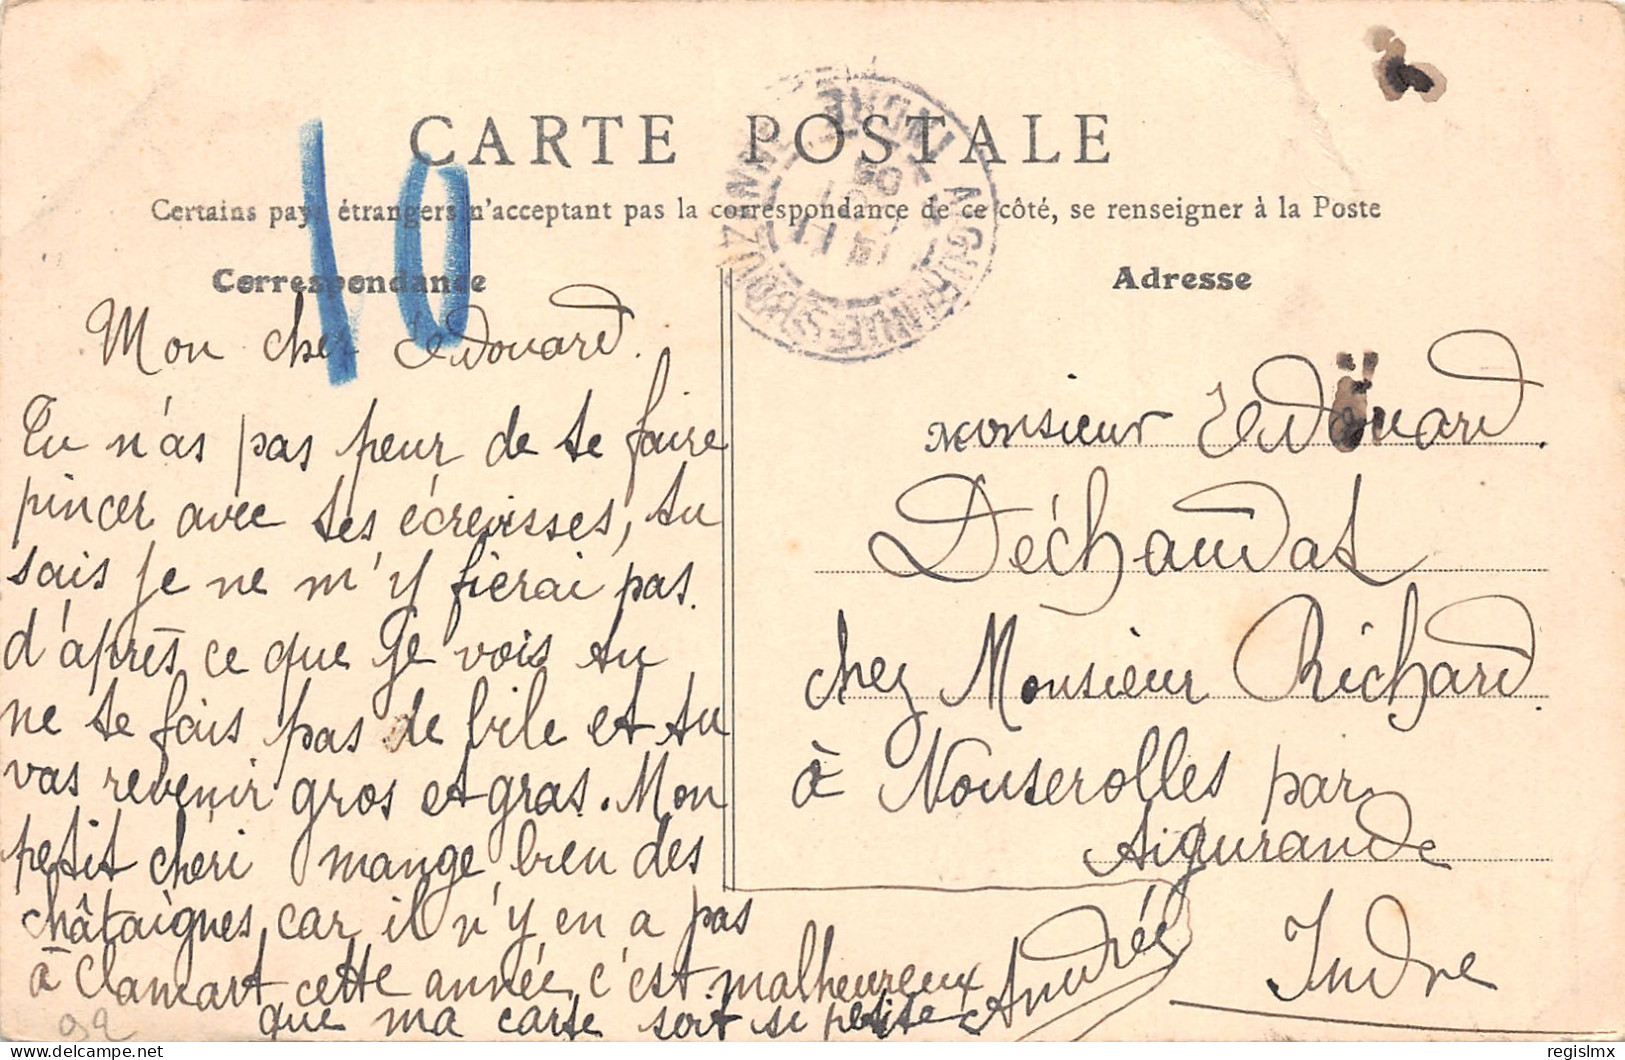 CARTE POSTALE
Certains pays étrangers n'acceptant pas la correspondance de ce côté, se renseigner à la Poste
Correspondance
Adresse
10
Mon cher Edouard.
Tu n'as pas peur de te faire
pincer avec tes écrevisses, tu
sais je ne m'y fierai pas.
d'après ce que Je vois tu
ne te fais pas de bile et tu
vas revenir gros et gras. Mon
petit cheri mange bien des
châtaignes, car il n'y en a pas
à Clamart cette année, c'est malheureux
que ma carte soit si petite
Andrée
Monsieur Edouard.
Déchaudat
chez Monsieur Richard.
à Nouserolles par
Aigurande
Indre
AIGURANDE-
INDRE
92
regislmx
delcampe.net